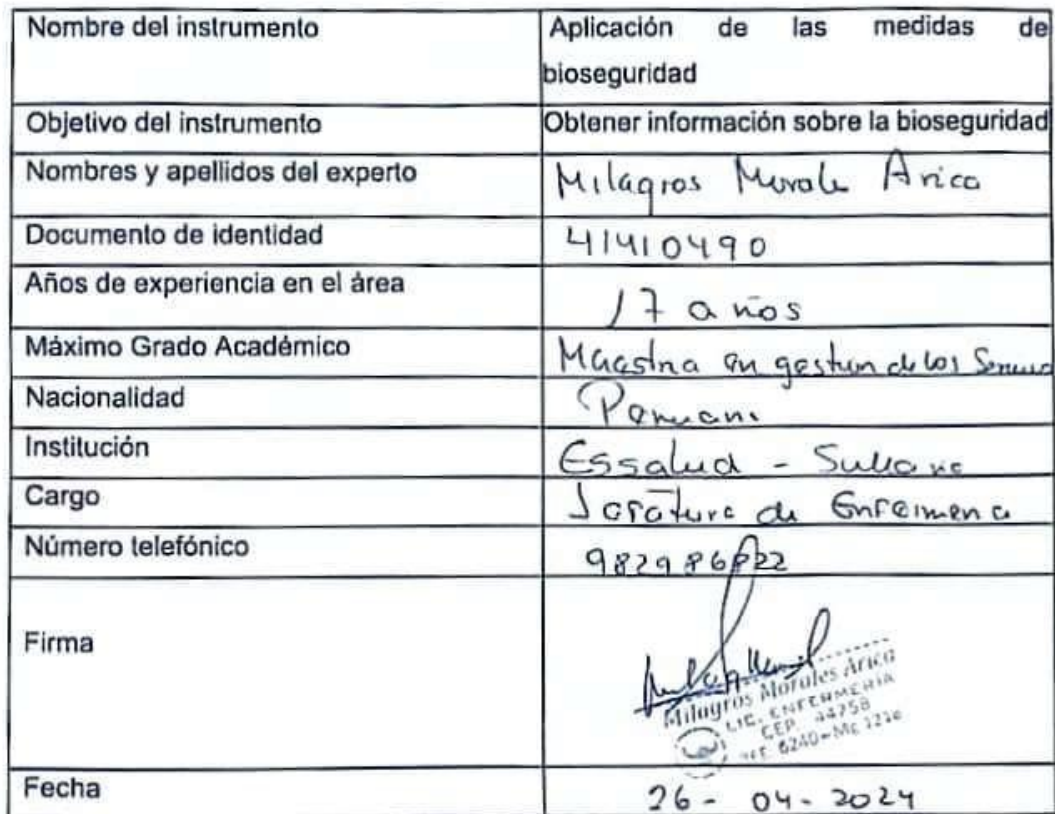 Nombre del instrumento
Aplicación de las medidas de
bioseguridad
Objetivo del instrumento
Obtener información sobre la bioseguridad
Nombres y apellidos del experto
Milagros Morale Arica
Documento de identidad
41410490
Años de experiencia en el área
17 años
Máximo Grado Académico
Maestria en gestion de los
Nacionalidad
Peruana
Institución
Essalud - Sullana
Cargo
Jefatura de Enfermeria
Número telefónico
982986822
Firma
Milagros Morales Arica
LIC. ENFERMERÍA
CEP. 44758
6240 - MC 1216
Fecha
26 - 04 - 2024